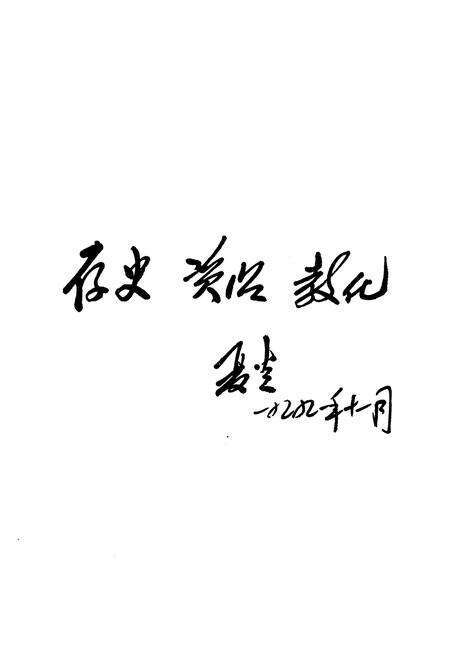 存史 资治 教化
一九九一年十一月